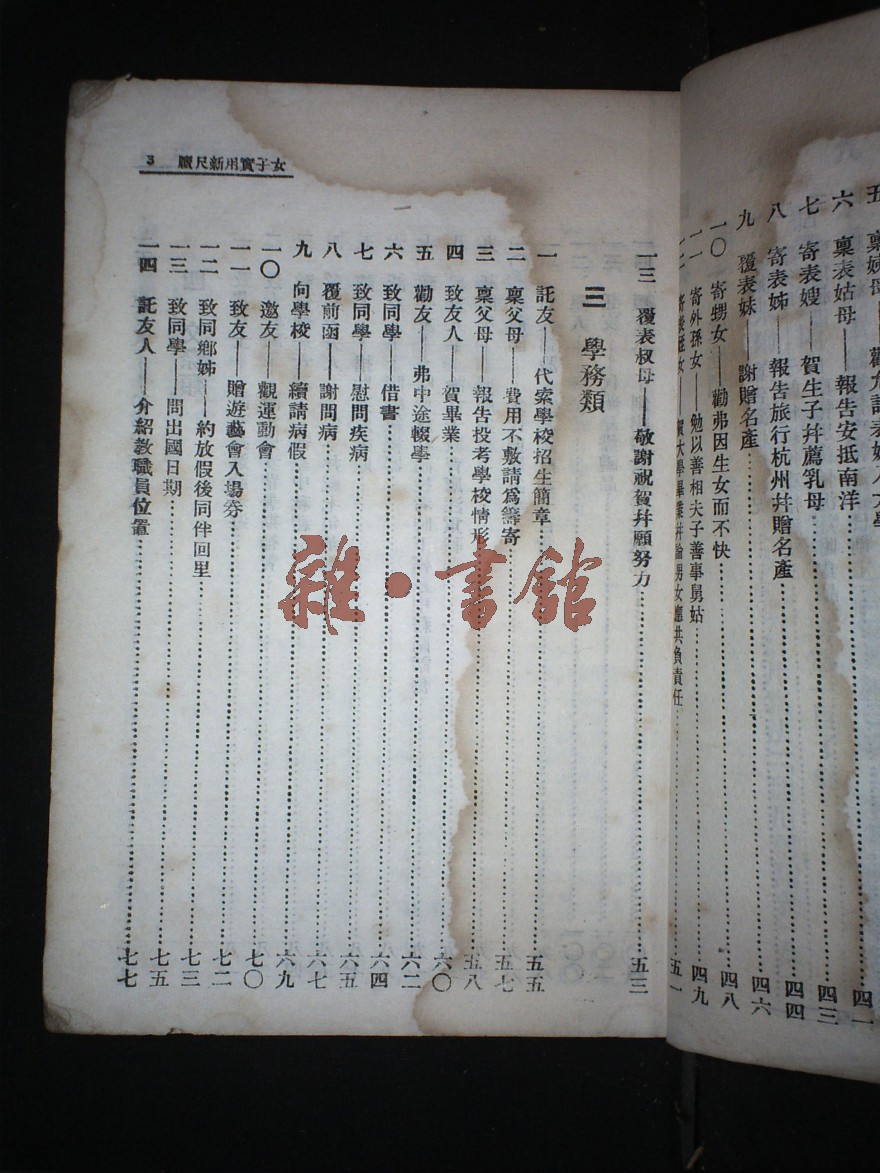 六 稟表姑母——報告安抵南洋 四三
七 寄表嫂——賀生子幷薦乳母
八 寄表姊——報告旅行杭州幷贈名產 四四
九 覆表妹——謝贈名產 四六
一〇 寄甥女——勸弗因生女而不快 四八
一一 寄外孫女——勉以善相夫子善事舅姑 四九
大學畢業幷論男女應共負責任 五一
女子實用新尺牘 3
一三 覆表叔母——敬謝祝賀幷願努力 五三
三 學務類
一 託友——代索學校招生簡章 五五
二 稟父母——費用不敷請爲籌寄 五七
三 稟父母——報告投考學校情形 五八
四 致友人——賀畢業 六〇
五 勸友——弗中途輟學 六二
六 致同學——借書 六四
七 致同學——慰問疾病 六五
八 覆前函——謝問病 六七
九 向學校——續請病假 六九
一〇 邀友——觀運動會 七〇
一一 致友——贈遊藝會入場券 七二
一二 致同鄉姊——約放假後同伴回里 七三
一三 致同學——問出國日期 七五
一四 託友人——介紹教職員位置 七七
雜·書館